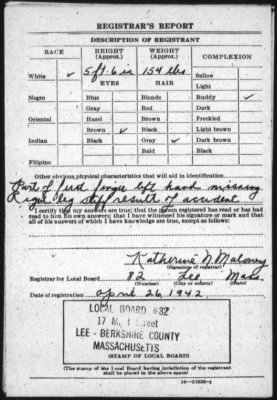 REGISTRAR'S REPORT
DESCRIPTION OF REGISTRANT
RACE HEIGHT (Approx.) WEIGHT (Approx.) COMPLEXION
White ✓ 5 ft. 6 in 154 lbs Sallow
EYES HAIR Light
Negro Blue Blonde Ruddy ✓
Gray Red Dark
Oriental Hazel Brown Freckled
Brown ✓ Black Light brown
Indian Black Gray ✓ Dark brown
Bald Black
Filipino
Other obvious physical characteristics that will aid in identification
Part of first finger left hand missing
Right leg stiff result of accident
I certify that my answers are true; that the person registered has read or has had
read to him his own answers; that I have witnessed his signature or mark and that
all of his answers of which I have knowledge are true, except as follows:
Katherine N. Maloney
(Signature of registrar)
Registrar for Local Board 82 Lee Mass.
(Number) (City or county) (State)
Date of registration April 26, 1942
LOCAL BOARD #82
17 Street
LEE - BERKSHIRE COUNTY
MASSACHUSETTS
(STAMP OF LOCAL BOARD)
(The stamp of the Local Board having jurisdiction of the registrant
shall be placed in the above space)